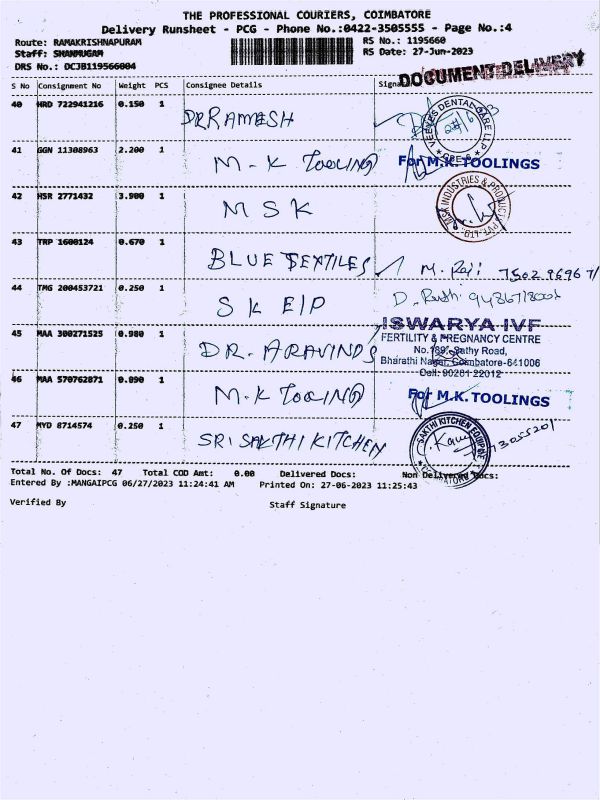 THE PROFESSIONAL COURIERS, COIMBATORE
Delivery Runsheet - PCG - Phone No.:0422-3505555 - Page No.:4
Route: RAMAKRISHNAPURAM
RS No.: 1195660
Staff: SHANMUGAM
RS Date: 27-Jun-2023
DRS No.: DCJB119566004
DOCUMENT DELIVERY
S No Consignment No Weight PCS Consignee Details
40 HRD 722941216 0.150 1 DR RAMESH
VEEYES DENTAL CARE LLP
41 GGN 11308963 2.200 1 M.K TOOLING For M.K.TOOLINGS
42 HSR 2771432 3.900 1 M S K
MSK INDUSTRIES & PRODUCTS PVT. LTD.
43 TRP 1600124 0.670 1 BLUE TEXTILES M. Raji
44 TMG 200453721 0.250 1 S K E/P
45 MAA 300271525 0.980 1 DR. ARAVINDS
ISWARYA IVF
FERTILITY & PREGNANCY CENTRE
Sathy Road,
Bharathi Nagar, Coimbatore-641006
Cell: 90201 22012
46 MAA 570762871 0.090 1 M.K TOOLING For M.K.TOOLINGS
47 MYD 8714574 0.250 1 SRI SAKTHI KITCHEN
SAKTHI KITCHEN EQUIPMENT
Total No. Of Docs: 47 Total COD Amt: 0.00 Delivered Docs: Non Delivered Docs:
Entered By :MANGAIPCG 06/27/2023 11:24:41 AM Printed On: 27-06-2023 11:25:43
Verified By Staff Signature